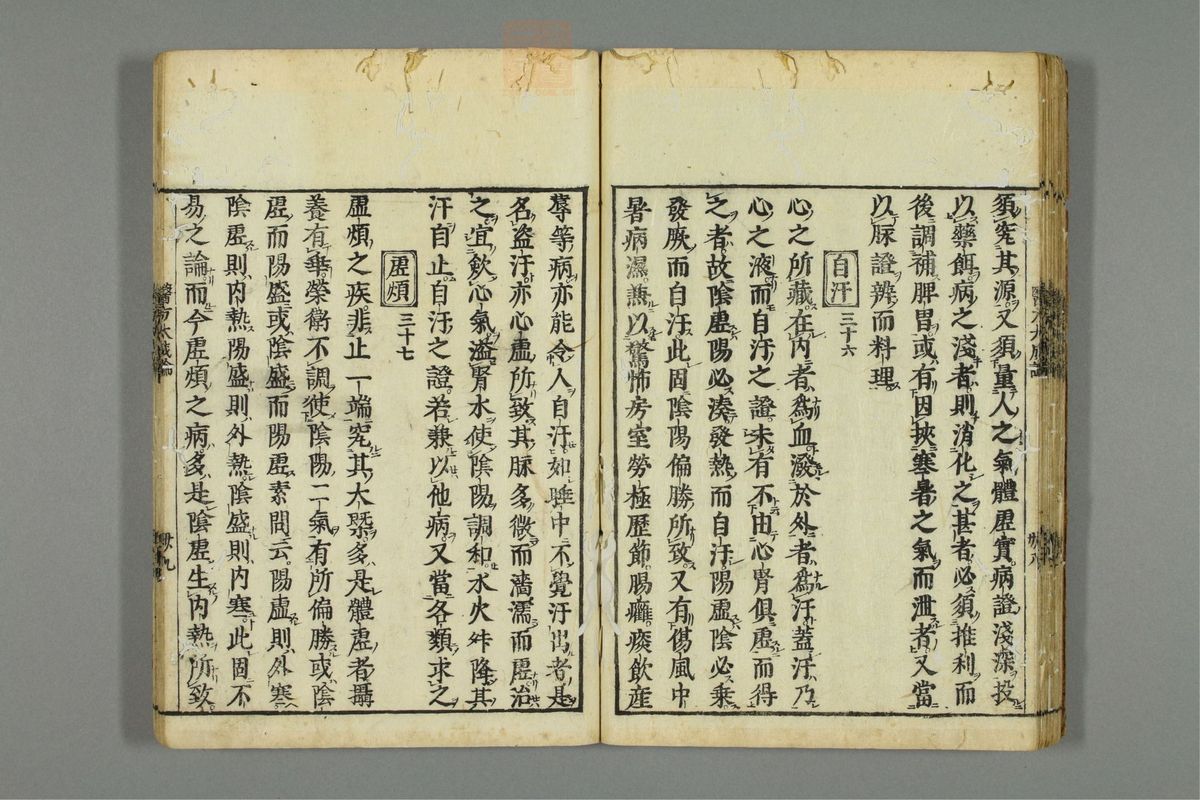 須究其源又須量人之氣體虛實病證淺深投
以藥餌病之淺者則消化之甚者必須推利而
後調補脾胃或有因挾寒暑之氣而泄者又當
以脉證辨而料理
自汗 三十六
心之所藏在内者為血溌於外者為汗蓋汗乃
心之液而自汗之證未有不由心腎俱虛而得
之者故陰虛陽必湊發熱而自汗陽虛陰必乘
發厥而自汗此固陰陽偏勝所致又有傷風中
暑病濕兼以驚怖房室勞極歷節腸癰痰飲産
蓐等病亦能令人自汗如睡中不覺汗出者是
名盗汗亦心虛所致其脉多微而濇濡而虛治
之宜歛心氣溢腎水使陰陽調和水火升降其
汗自止自汗之證若兼以他病又當各類求之
虛煩 三十七
虛煩之疾非止一端究其大槩多是體虛者攝
養有乖榮衛不調使陰陽二氣有所偏勝或陰
虛而陽盛或陰盛而陽虛素問云陽虛則外寒
陰虛則内熱陽盛則外熱陰盛則内寒此固不
易之論而今虛煩之病多是陰虛生内熱所致